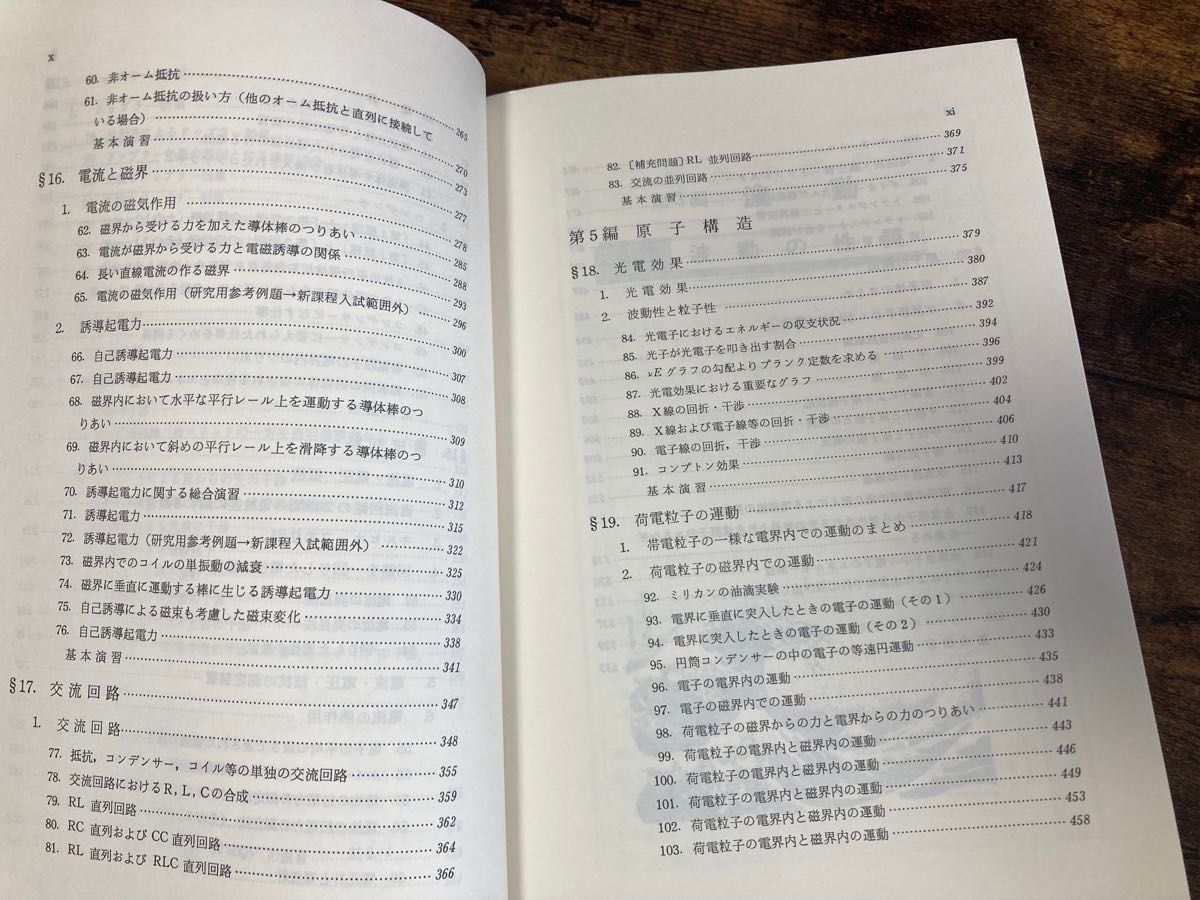 x
60. 非オーム抵抗……265
61. 非オーム抵抗の扱い方（他のオーム抵抗と直列に接続して
いる場合）……270
基本演習……273
§16. 電流と磁界……277
1. 電流の磁気作用……278
62. 磁界から受ける力を加えた導体棒のつりあい……285
63. 電流が磁界から受ける力と電磁誘導の関係……288
64. 長い直線電流の作る磁界……293
65. 電流の磁気作用（研究用参考例題→新課程入試範囲外）……296
2. 誘導起電力……300
66. 自己誘導起電力……307
67. 自己誘導起電力……308
68. 磁界内において水平な平行レール上を運動する導体棒のつ
りあい……309
69. 磁界内において斜めの平行レール上を滑降する導体棒のつ
りあい……310
70. 誘導起電力に関する総合演習……312
71. 誘導起電力……315
72. 誘導起電力（研究用参考例題→新課程入試範囲外）……322
73. 磁界内でのコイルの単振動の減衰……325
74. 磁界に垂直に運動する棒に生じる誘導起電力……330
75. 自己誘導による磁束も考慮した磁束変化……334
76. 自己誘導起電力……338
基本演習……341
§17. 交流回路……347
1. 交流回路……348
77. 抵抗，コンデンサー，コイル等の単独の交流回路……355
78. 交流回路におけるR，L，Cの合成……359
79. RL 直列回路……362
80. RC 直列および CC 直列回路……364
81. RL 直列および RLC 直列回路……366
xi
82. 〔補充問題〕RL 並列回路……369
83. 交流の並列回路……371
基本演習……375
第5編 原子構造
§18. 光電効果……379
1. 光電効果……380
2. 波動性と粒子性……387
84. 光電子におけるエネルギーの収支状況……392
85. 光子が光電子を叩き出す割合……394
86. νE グラフの勾配よりプランク定数を求める……396
87. 光電効果における重要なグラフ……399
88. X線の回折・干渉……402
89. X線および電子線等の回折・干渉……404
90. 電子線の回折，干渉……406
91. コンプトン効果……410
基本演習……413
§19. 荷電粒子の運動……417
1. 帯電粒子の一様な電界内での運動のまとめ……418
2. 荷電粒子の磁界内での運動……421
92. ミリカンの油滴実験……424
93. 電界に垂直に突入したときの電子の運動（その1）……426
94. 電界に突入したときの電子の運動（その2）……430
95. 円筒コンデンサーの中の電子の等速円運動……433
96. 電子の電界内の運動……435
97. 電子の磁界内での運動……438
98. 荷電粒子の磁界からの力と電界からの力のつりあい……441
99. 荷電粒子の電界内と磁界内の運動……443
100. 荷電粒子の電界内と磁界内の運動……446
101. 荷電粒子の電界内と磁界内の運動……449
102. 荷電粒子の電界内と磁界内の運動……453
103. 荷電粒子の電界内と磁界内の運動……458